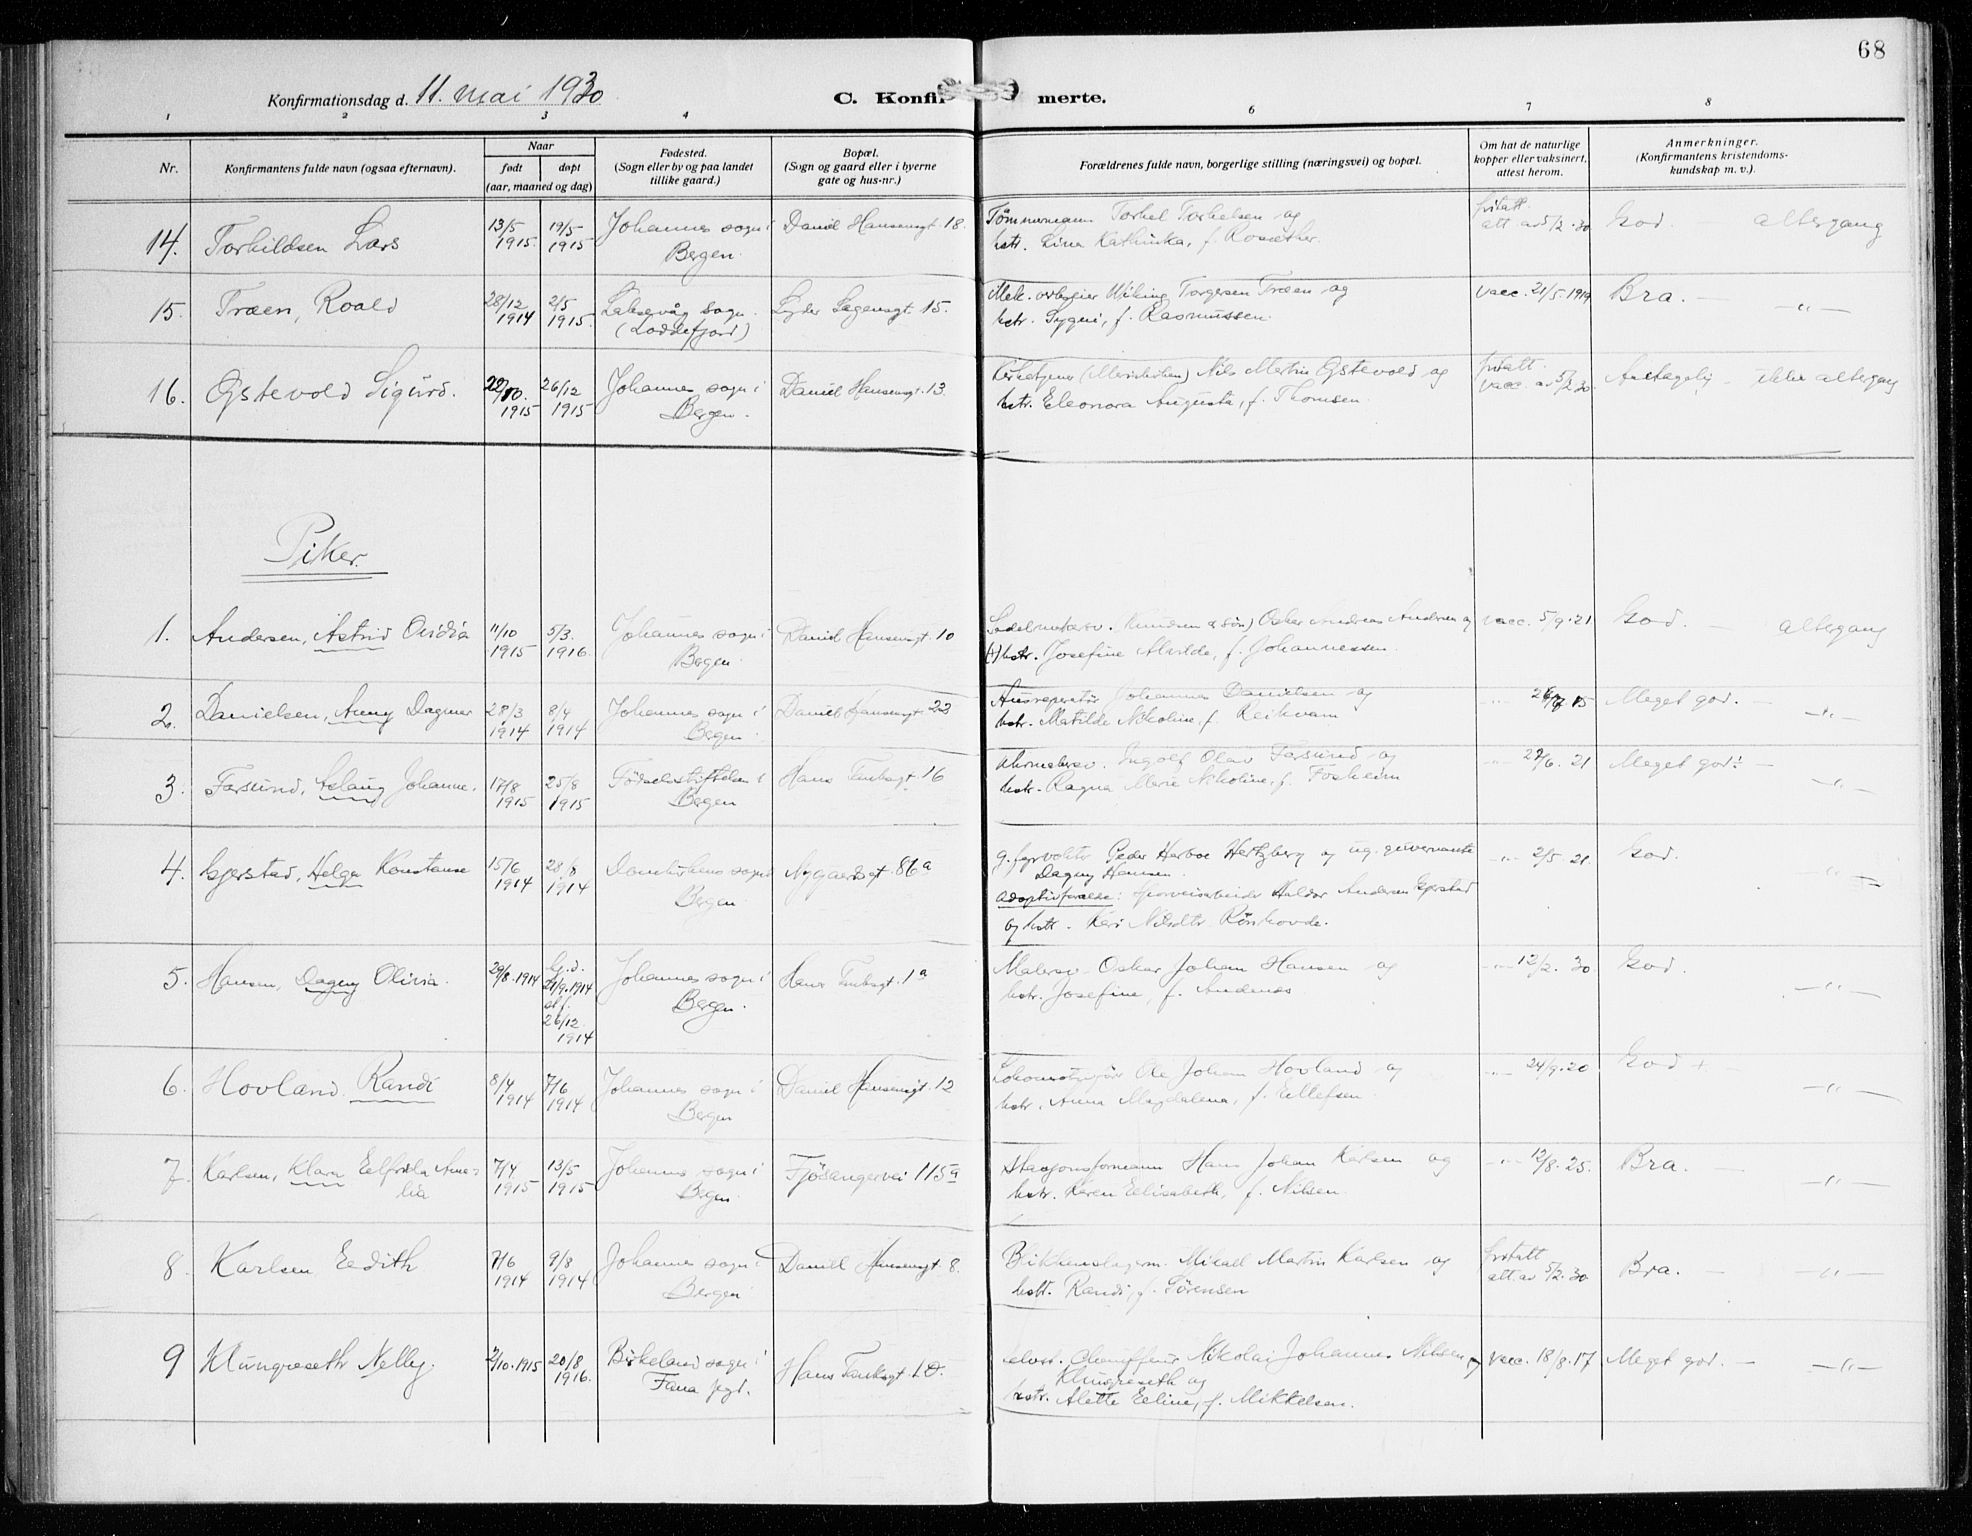 68
Konfirmationsdag d. 11. mai 1930
C. Konfirmerte.
1 2 3 4 6 7 8
Nr.
Konfirmantens fulde navn (ogsaa efternavn).
Naar
født døpt
(aar, maaned og dag)
Fødested.
(Sogn eller by og paa landet
tillike gaard.)
Bopæl.
(Sogn og gaard eller i byerne
gate og hus-nr.)
Forældrenes fulde navn, borgerlige stilling (næringsvei) og bopæl.
Om hat de naturlige
kopper eller vaksinert,
attest herom.
Anmerkninger.
(Konfirmantens kristendoms-
kundskap m. v.).
14. Torkildsen Lars 13/5 1915 19/5 1915 Johannes sogn i Bergen. Daniel Hansensgt 18.
Tømmermann Torkel Torkelsen og
hstr. Lina Kathinka, f. Rosæther.
fritatt
att av 5/2.30 God. altergang
15. Træen, Roald 28/12 1914 2/5 1915. Laksevåg sogn. (Loddefjord) Lyder Sagensgt 15.
Mek. arbeider Wiking Torgersen Træen og
hstr. Sygni, f. Rasmussen.
vacc. 21/5.1919 Bra. — — " —
16. Østevold Sigurd. 22/10. 1915 26/12 1915 Johannes sogn i Bergen. Daniel Hansensgt. 13.
Kirketjener (Mariakirken) Nils Martin Østevold og
hstr. Eleonora Augusta, f. Thomsen.
fritatt.
vacc. av 5/2 30 Antagelig - ikke altergang
Piker.
1. Andersen, Astrid Ovidia 11/10 1915 5/3. 1916. Johannes sogn i Bergen. Daniel Hansensgt 10
Oskar Andreas Andersen og
(+) hstr. Josefine Alvilde, f. Johannessen.
vacc. 5/9.21 God. altergang
2. Danielsen, Anny Dagmar 28/3 1914 8/4 1914 Johannes sogn i Bergen. Daniel Hansensgt 22
Johannes Danielsen og
hstr. Matilde Nikoline, f. Reikvam
15 Meget god. — " —
3. Farsund, Aslaug Johanne. 17/8 1915 25/8 1915 Fødselsstiftelsen i Bergen Hans Tanksgt 16
Ingolf Olav Farsund og
hstr. Ragna Marie Nikoline, f. Fosheim
6. 21 Meget god. — — " —
4. Gjerstad, Helga Konstanse 15/6 1914 28/8 1914 Domkirkens sogn i Bergen. Nygaardsgt. 86a
g. fyrvoktr Peder Harboe Hertzberg og ug. guvernante
Dagny Hansen.
adoptivforeldre: Sporveisarbeider Haldor Andersen Gjerstad
og hstr. Kari Nilsdtr Rønhovde.
2/5.21 God. — " —
5. Hansen, Dagny Olivia. 29/8.1914 hj.d. 21/9.1914 st.f. 26/12. 1914 Johannes sogn i Bergen. Hans Tanksgt. 1a
Malersv. Oskar Johan Hansen og
hstr. Josefine, f. Andenæs
12/2. 30. God. — " —
6. Hovland Randi 8/4 1914 7/6 1914 Johannes sogn i Bergen Daniel Hansensgt. 12
Lokomotivfører Ole Johan Hovland og
hstr. Anna Magdalena, f. Ellefsen.
24/9.20 God + — " —
7. Karlsen, Klara Elfrida Ama=
lia 7/4 1915 13/5 1915 Johannes sogn i Bergen. Fjøsangervei 115a
Stasjonsformann Hans Johan Karlsen og
hstr. Karen Elisabeth, f. Nilsen.
12/8. 25. Bra. — — " —
8. Karlsen Edith 7/6 1914 9/8 1914 Johannes sogn i Bergen. Daniel Hansensgt 8.
Blikkenslagerm. Mikael Martin Karlsen og
hstr. Randi, f. Sørensen
fritatt
att. av 5/2.30 Bra. — — " —
9 Klungreseth Nelly. 2/10.1915 20/8 1916. Birkeland sogn i Fana pgd. Hans Tanksgt 10.
selvst. Chauffeur Nikolai Johannes Nilsen
Klungreseth og
hstr. Alette Eline, f. Mikkelsen.
vacc. 18/8.17 Meget god. — — " —